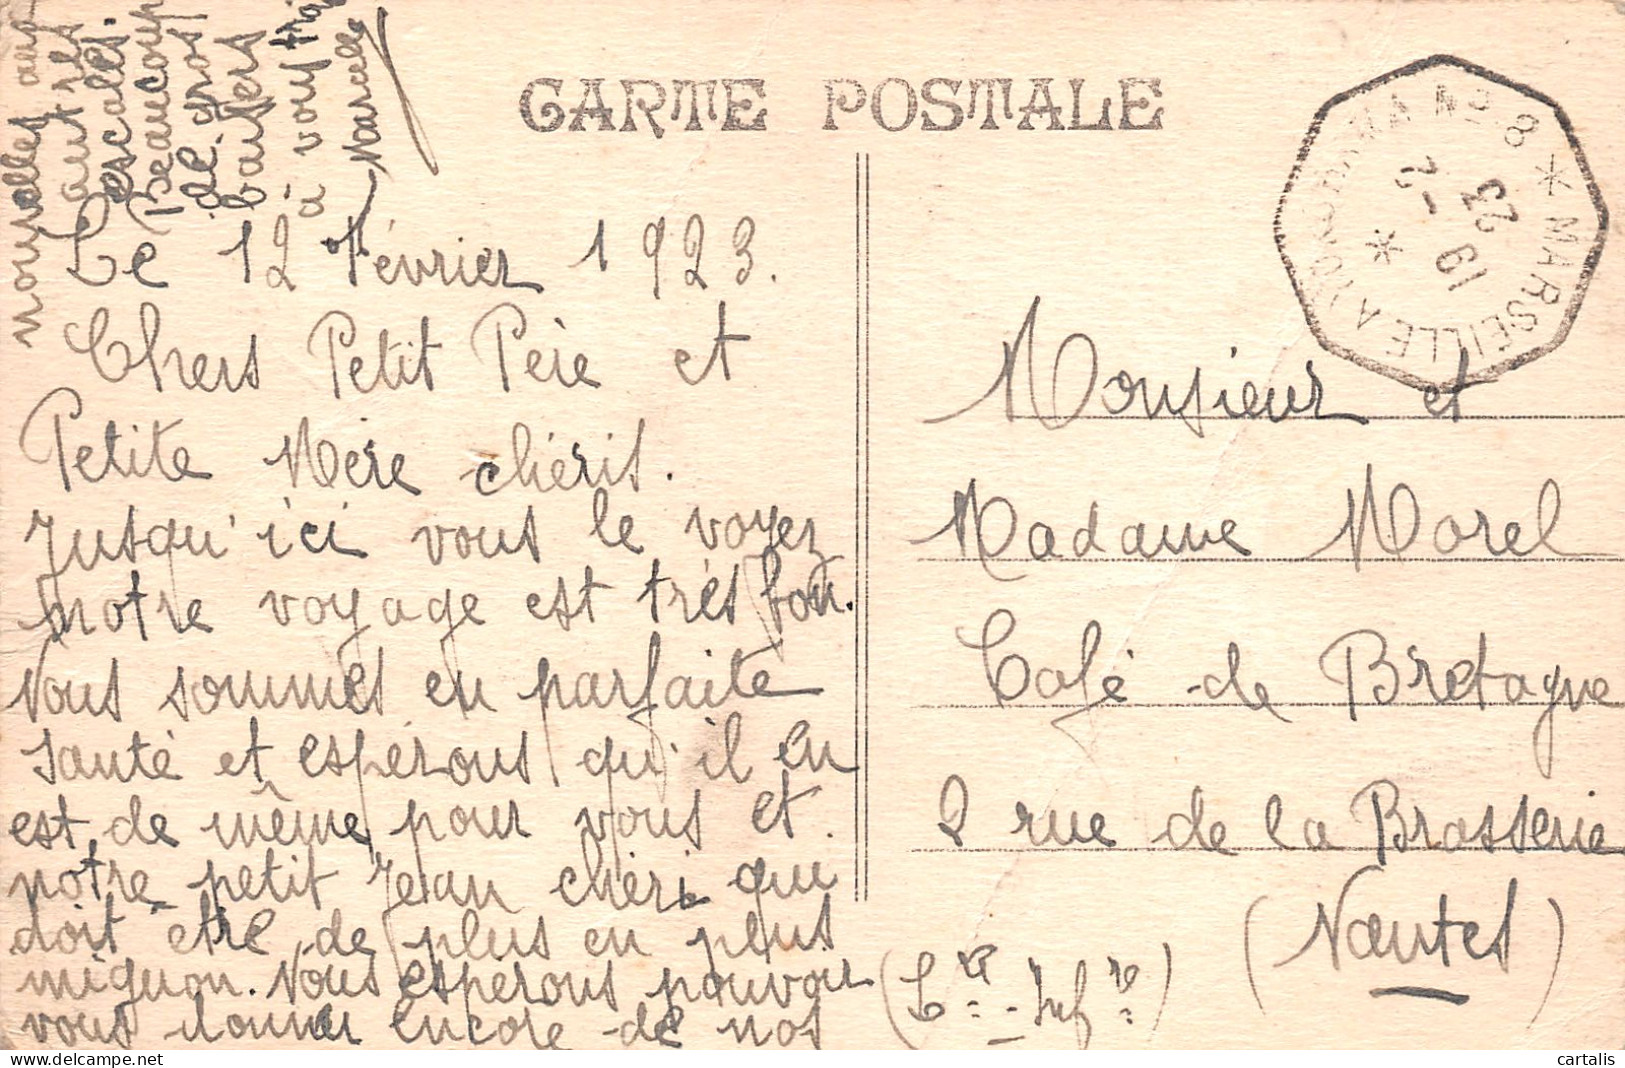 CARTE POSTALE
Le 12 Février 1923.
Chers Petit Père et
Petite Mère chéris.
Jusqu'ici vous le voyez
notre voyage est très bon.
Nous sommes en parfaite
santé et espérons qu'il en
est de même pour vous et
notre petit Jean chéri qui
doit être de plus en plus
mignon. Nous espérons pouvoir
vous donner encore de nos
nouvelles aux
autres
escales.
Beaucoup
de gros
baisers
à vous trois
Marcelle
MARSEILLE A YOKOHAMA Nº 8
19 - 2
23
Monsieur et
Madame Morel
Café de Bretagne
2 rue de la Brasserie
(Nantes)
(Lre - Infre)
cartalis